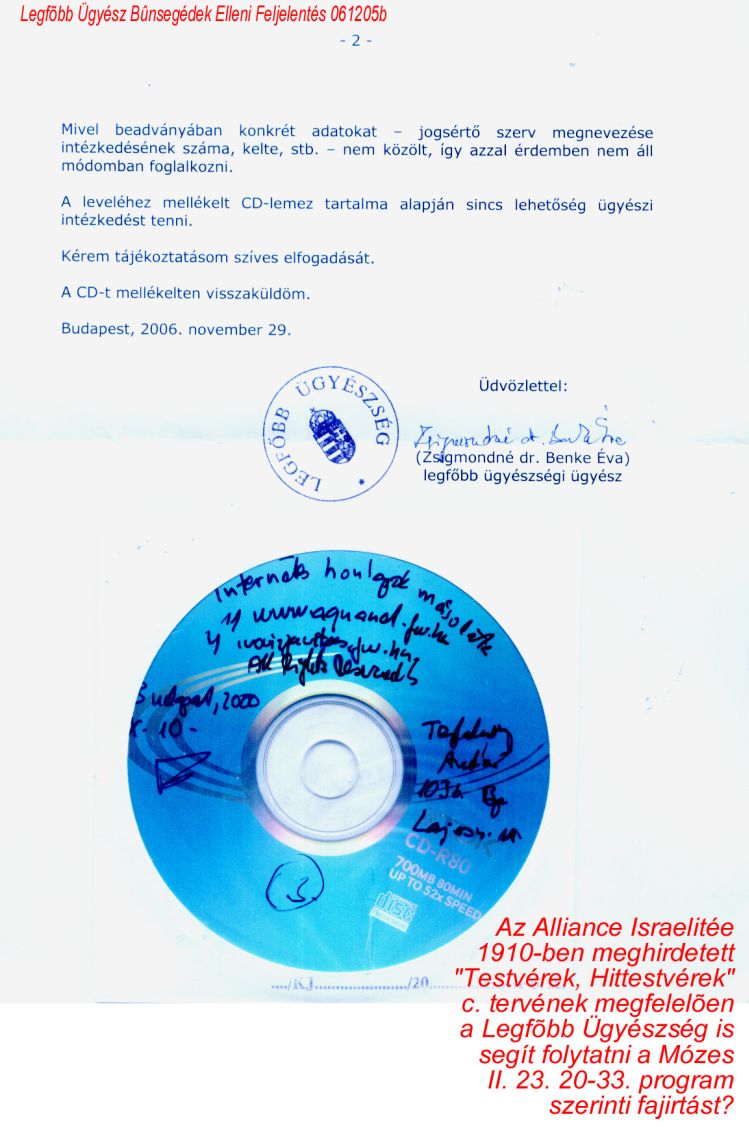 Legfõbb Ügyész Bûnsegédek Elleni Feljelentés 061205b
- 2 -
Mivel beadványában konkrét adatokat – jogsértő szerv megnevezése
intézkedésének száma, kelte, stb. – nem közölt, így azzal érdemben nem áll
módomban foglalkozni.
A leveléhez mellékelt CD-lemez tartalma alapján sincs lehetőség ügyészi
intézkedést tenni.
Kérem tájékoztatásom szíves elfogadását.
A CD-t mellékelten visszaküldöm.
Budapest, 2006. november 29.
LEGFŐBB ÜGYÉSZSÉG *
Üdvözlettel:
Zsigmondné dr. Benke Éva
(Zsigmondné dr. Benke Éva)
legfőbb ügyészségi ügyész
Internetes honlapok másolata
1)
All Rights Reserved
Budapest,
10
Lajos u.
3.
CD-R80
700MB 80MIN
UP TO 52x SPEED
COMPACT
disc
..../KJ....................../20
Az Alliance Israelitée
1910-ben meghirdetett
"Testvérek, Hittestvérek"
c. tervének megfelelõen
a Legfõbb Ügyészség is
segít folytatni a Mózes
II. 23. 20-33. program
szerinti fajirtást?